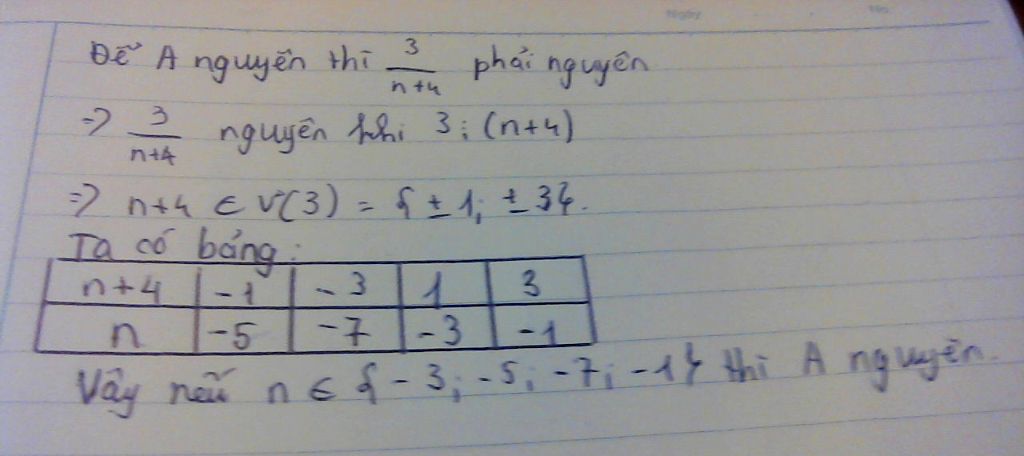 Ngày No.
Để A nguyên thì 3/(n+4) phải nguyên
=> 3/(n+4) nguyên khi 3 ⋮ (n+4)
=> n+4 ∈ Ư(3) = { ± 1; ± 3}.
Ta có bảng:
n+4 | -1 | -3 | 1 | 3
n | -5 | -7 | -3 | -1
Vậy nếu n ∈ { -3; -5; -7; -1} thì A nguyên.